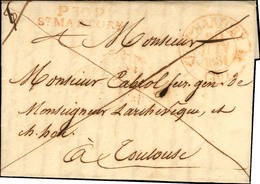 P30P
ST MARTORY
à Monsieur
Monsieur Cabrol sur. gen. de
Monseigneur l'archevêque, et
ch. hon.
à Toulouse